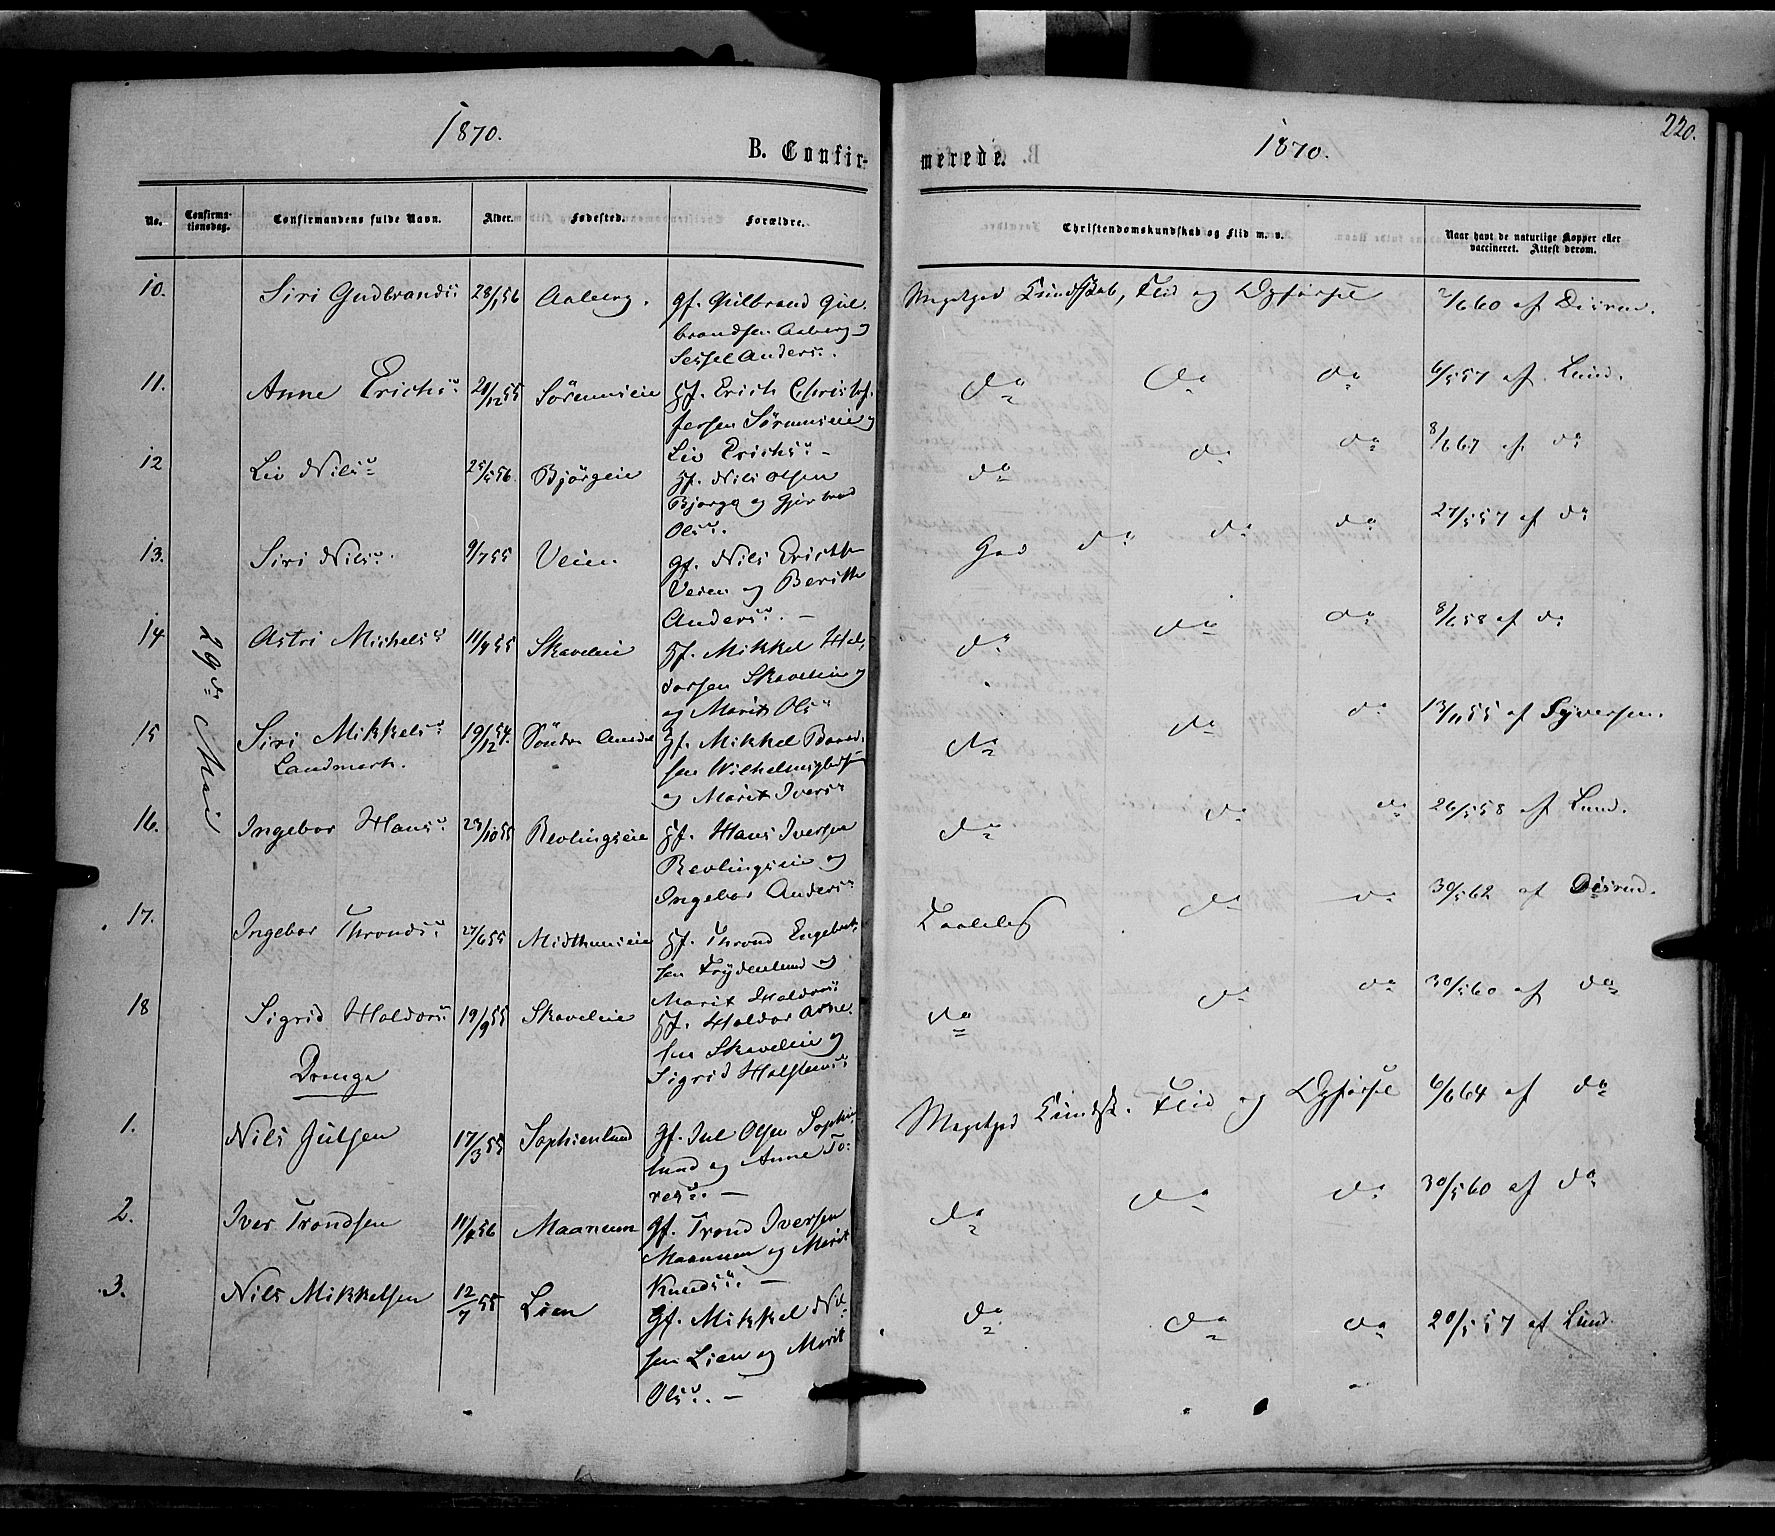 1870.
B. Confir-
merede.
1870.
220.
No.
Confirma-
tionsdag.
Confirmandens fulde Navn.
Alder.
Fødested.
Forældre.
Christendomskundskab og Flid m. v.
Naar havt de naturlige Kopper eller
vaccineret. Attest derom.
29de Mai
10. Siri Gudbrandsd: 28/1 56 Aaberg. Gf. Gulbrand Gul-
brandsen Aaberg og
Sessel Andersd:.
Megetgod Kundskab, Flid og Opførsel 2/6 60 af Disrud.
11. Anne Erichsd: 21/12 55 Sørumseie Gf. Erich Christof-
fersen Sørumseie og
Liv Erichsd: -
do do do 6/5 57 af Lund.
12 Liv Nilsd: 25/5 56 Bjørgeie Gf. Nils Olsen
Bjørge og
Olsd:.
do do do 8/6 67 af do
13. Siri Nilsd: 9/7 55 Veien Gf. Nils Erichs
Veien og Berith
Andersd:. -
God do do do 27/5 57 af do
14. Astri Mickelsd: 11/4 55 Skaveleie Gf. Mikkel Hal-
dorsen Skavelein og
og Marit Olsd:
do do do 8/6 58 af do
15 Siri Mikkelsd: 19/12 54. Søndre Gf. Mikkel Baard-
Landmark.
sen
og Marit Iversd:
do do do 13/11 55 af Syversen.
16. Ingebor Hansd: 23/10 55 Revlingseie Gf. Hans Iversen
Revlingseie og
Ingebor Andersd:
do do do 26/5 58 af Lund.
17. Ingebor Throndsd: 27/6 55 Midthunseie Gf. Thrond Engebret-
sen Frydenlund og
Marit Haldorsd:
Taalelig do do 30/5 62 af Disrud.
18 Sigrid Haldorsd: 19/9 55 Skaveleie Gf. Haldor Arne-
sen Skavelein og
Sigrid Halstensd:
do do do 30/5 60 af do
Drenge
1. Nils Julsen 17/3 55 Sophienlund Gf. Jul Olsen Sophien
lund og Anne To-
resd:. -
Megetgod Kundsk. Flid og Opførsel 6/6 64 af do
2. Iver Trondsen 11/4 56 Maanum Gf. Trond Iversen
Maanum og Marit
Knudsd:. -
do do do 30/5 60 af do
3. Nils Mikkelsen 12/7 55 Lien Gf. Mikkel Nil-
sen Lien og Marit
Olsd:. -
do do do 20/5 57 af Lund.